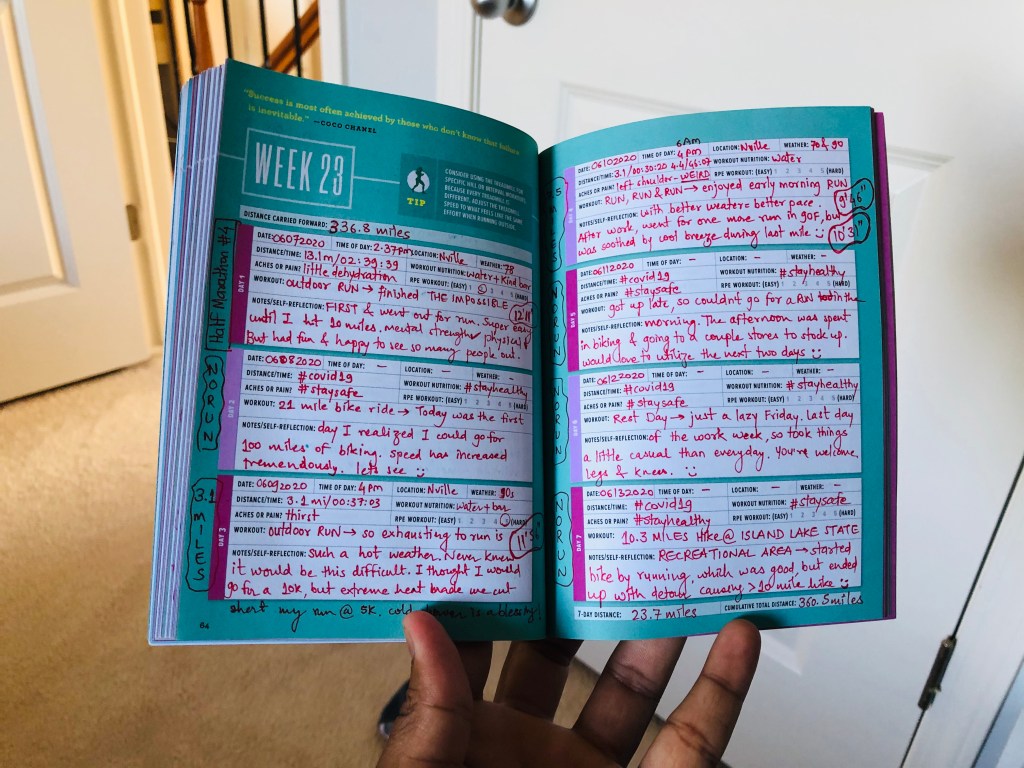 "Success is most often achieved by those who don't know that failure
is inevitable." —COCO CHANEL
WEEK 23
TIP
CONSIDER USING THE TREADMILL FOR
SPECIFIC HILL OR INTERVAL WORKOUTS.
BECAUSE EVERY TREADMILL IS
DIFFERENT, ADJUST THE TREADMILL
SPEED TO WHAT FEELS LIKE THE SAME
EFFORT WHEN RUNNING OUTSIDE.
DISTANCE CARRIED FORWARD: 336.8 miles
Half Marathon #4
DAY 1
DATE: 06072020 TIME OF DAY: 2:37pm LOCATION: Nville WEATHER: 78
DISTANCE/TIME: 13.1m/02:39:39 WORKOUT NUTRITION: water + Kind bar
ACHES OR PAIN? little dehydration RPE WORKOUT: (EASY) 1 2 3 4 5 (HARD)
WORKOUT: outdoor RUN → finished THE IMPOSSIBLE 12'11"
NOTES/SELF-REFLECTION: FIRST & went out for run. Super easy
until I hit 10 miles. mental strength > physical!
But had fun & happy to see so many people out.
NO RUN
DAY 2
DATE: 06082020 TIME OF DAY: – LOCATION: – WEATHER: –
DISTANCE/TIME: #covid19 WORKOUT NUTRITION: #stayhealthy
ACHES OR PAIN? #staysafe RPE WORKOUT: (EASY) 1 2 3 4 5 (HARD)
WORKOUT: 21 mile bike ride → Today was the first
NOTES/SELF-REFLECTION: day I realized I could go for
100 miles of biking. speed has increased
tremendously. lets see
3.1 MILES
DAY 3
DATE: 06092020 TIME OF DAY: 4pm LOCATION: Nville WEATHER: 90s
DISTANCE/TIME: 3.1 mi/00:37:03 WORKOUT NUTRITION: water + bar
ACHES OR PAIN? thirst RPE WORKOUT: (EASY) 1 2 3 4 5 (HARD)
WORKOUT: outdoor RUN → so exhausting to run is 11'56"
NOTES/SELF-REFLECTION: Such a hot weather. Never knew
it would be this difficult. I thought I would
go for a 10k, but extreme heat made me cut
short my run @ 5K. cold is a blessing
64
6Am
DATE: 06102020 TIME OF DAY: 4pm LOCATION: Nville WEATHER: 70 & 90
DISTANCE/TIME: 3.1/00:30:20 4.4/46:07 WORKOUT NUTRITION: water
ACHES OR PAIN? left shoulder - WEIRD RPE WORKOUT: (EASY) 1 2 3 4 5 (HARD)
WORKOUT: RUN, RUN & RUN → enjoyed early morning RUN 9'46"
NOTES/SELF-REFLECTION: with better weater = better pace.
After work, went for one more run in 90F, but
was soothed by cool breeze during last mile 10'31"
DAY 5
DATE: 06112020 TIME OF DAY: – LOCATION: – WEATHER: –
DISTANCE/TIME: #covid19 WORKOUT NUTRITION: #stayhealthy
ACHES OR PAIN? #staysafe RPE WORKOUT: (EASY) 1 2 3 4 5 (HARD)
WORKOUT: got up late, so couldn't go for a RUN in the
NOTES/SELF-REFLECTION: morning. The afternoon was spent
in biking & going to a couple stores to stock up.
would love to utilize the next two days
NO RUN
DAY 6
DATE: 06122020 TIME OF DAY: – LOCATION: – WEATHER: –
DISTANCE/TIME: #covid19 WORKOUT NUTRITION: #stayhealthy
ACHES OR PAIN? #staysafe RPE WORKOUT: (EASY) 1 2 3 4 5 (HARD)
WORKOUT: Rest Day → just a lazy Friday. last day
NOTES/SELF-REFLECTION: of the work week, so took things
a little casual than everyday. You're welcome
legs & knees.
NO RUN
DAY 7
DATE: 06132020 TIME OF DAY: – LOCATION: – WEATHER: –
DISTANCE/TIME: #covid19 WORKOUT NUTRITION: #staysafe
ACHES OR PAIN? #stayhealthy RPE WORKOUT: (EASY) 1 2 3 4 5 (HARD)
WORKOUT: 10.3 MILES Hike @ ISLAND LAKE STATE
NOTES/SELF-REFLECTION: RECREATIONAL AREA → started
bike by running, which was good, but ended
up with detour causing > 10 mile hike
7-DAY DISTANCE: 23.7 miles CUMULATIVE TOTAL DISTANCE: 360.5 miles